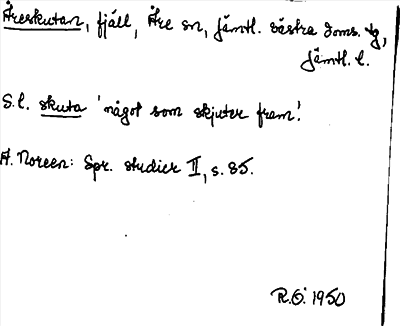 Åreskutan, fjäll, Åre sn, Jämtl. västra doms. tg,
Jämtl. l.
S.l. skuta 'något som skjuter fram'.
A. Noreen: Spr. studier II, s. 85.
R.Ö. 1950